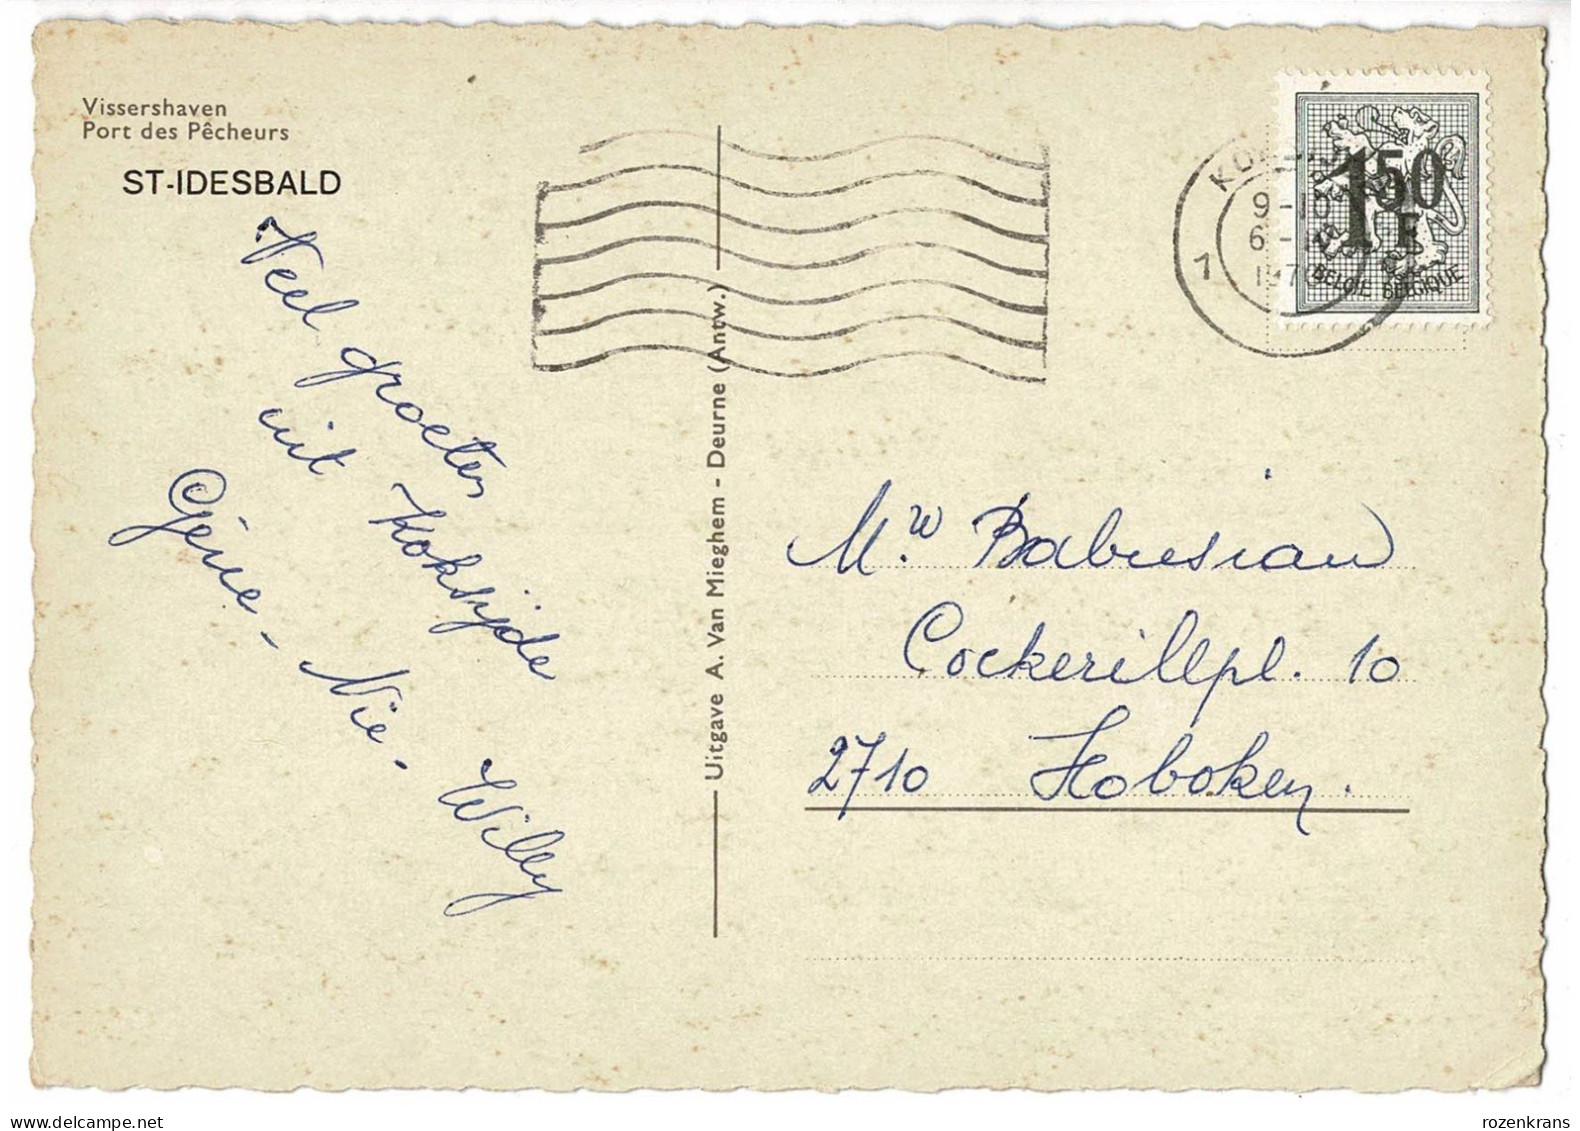 Vissershaven
Port des Pêcheurs
ST-IDESBALD
Veel groeten
uit Koksijde
Gène - Nie - Willy
Uitgave A. Van Mieghem - Deurne (Antw.)
1 50
F
BELGIE BELGIQUE
9-10
1
M.w Babusiau
Cockerillpl. 10
2710 Hoboken.
www.delcampe.net
rozenkrans